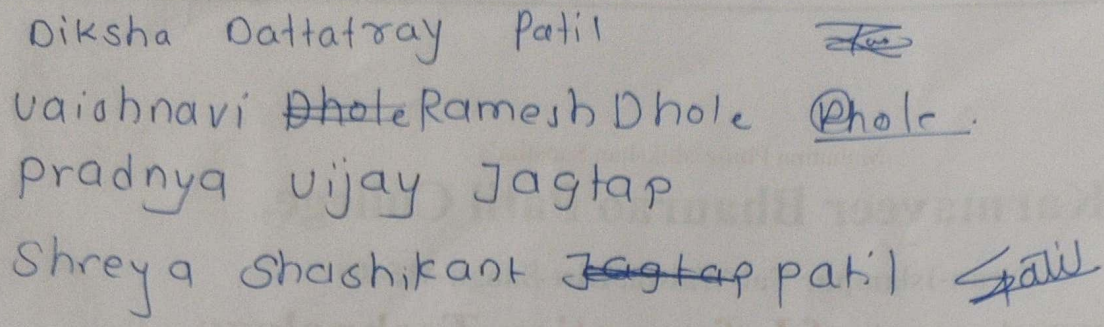 Diksha Dattatray Patil
Vaishnavi Dhole Ramesh Dhole Dhole.
Pradnya Vijay Jagtap
Shreya Shashikant Jagtap patil Spatil